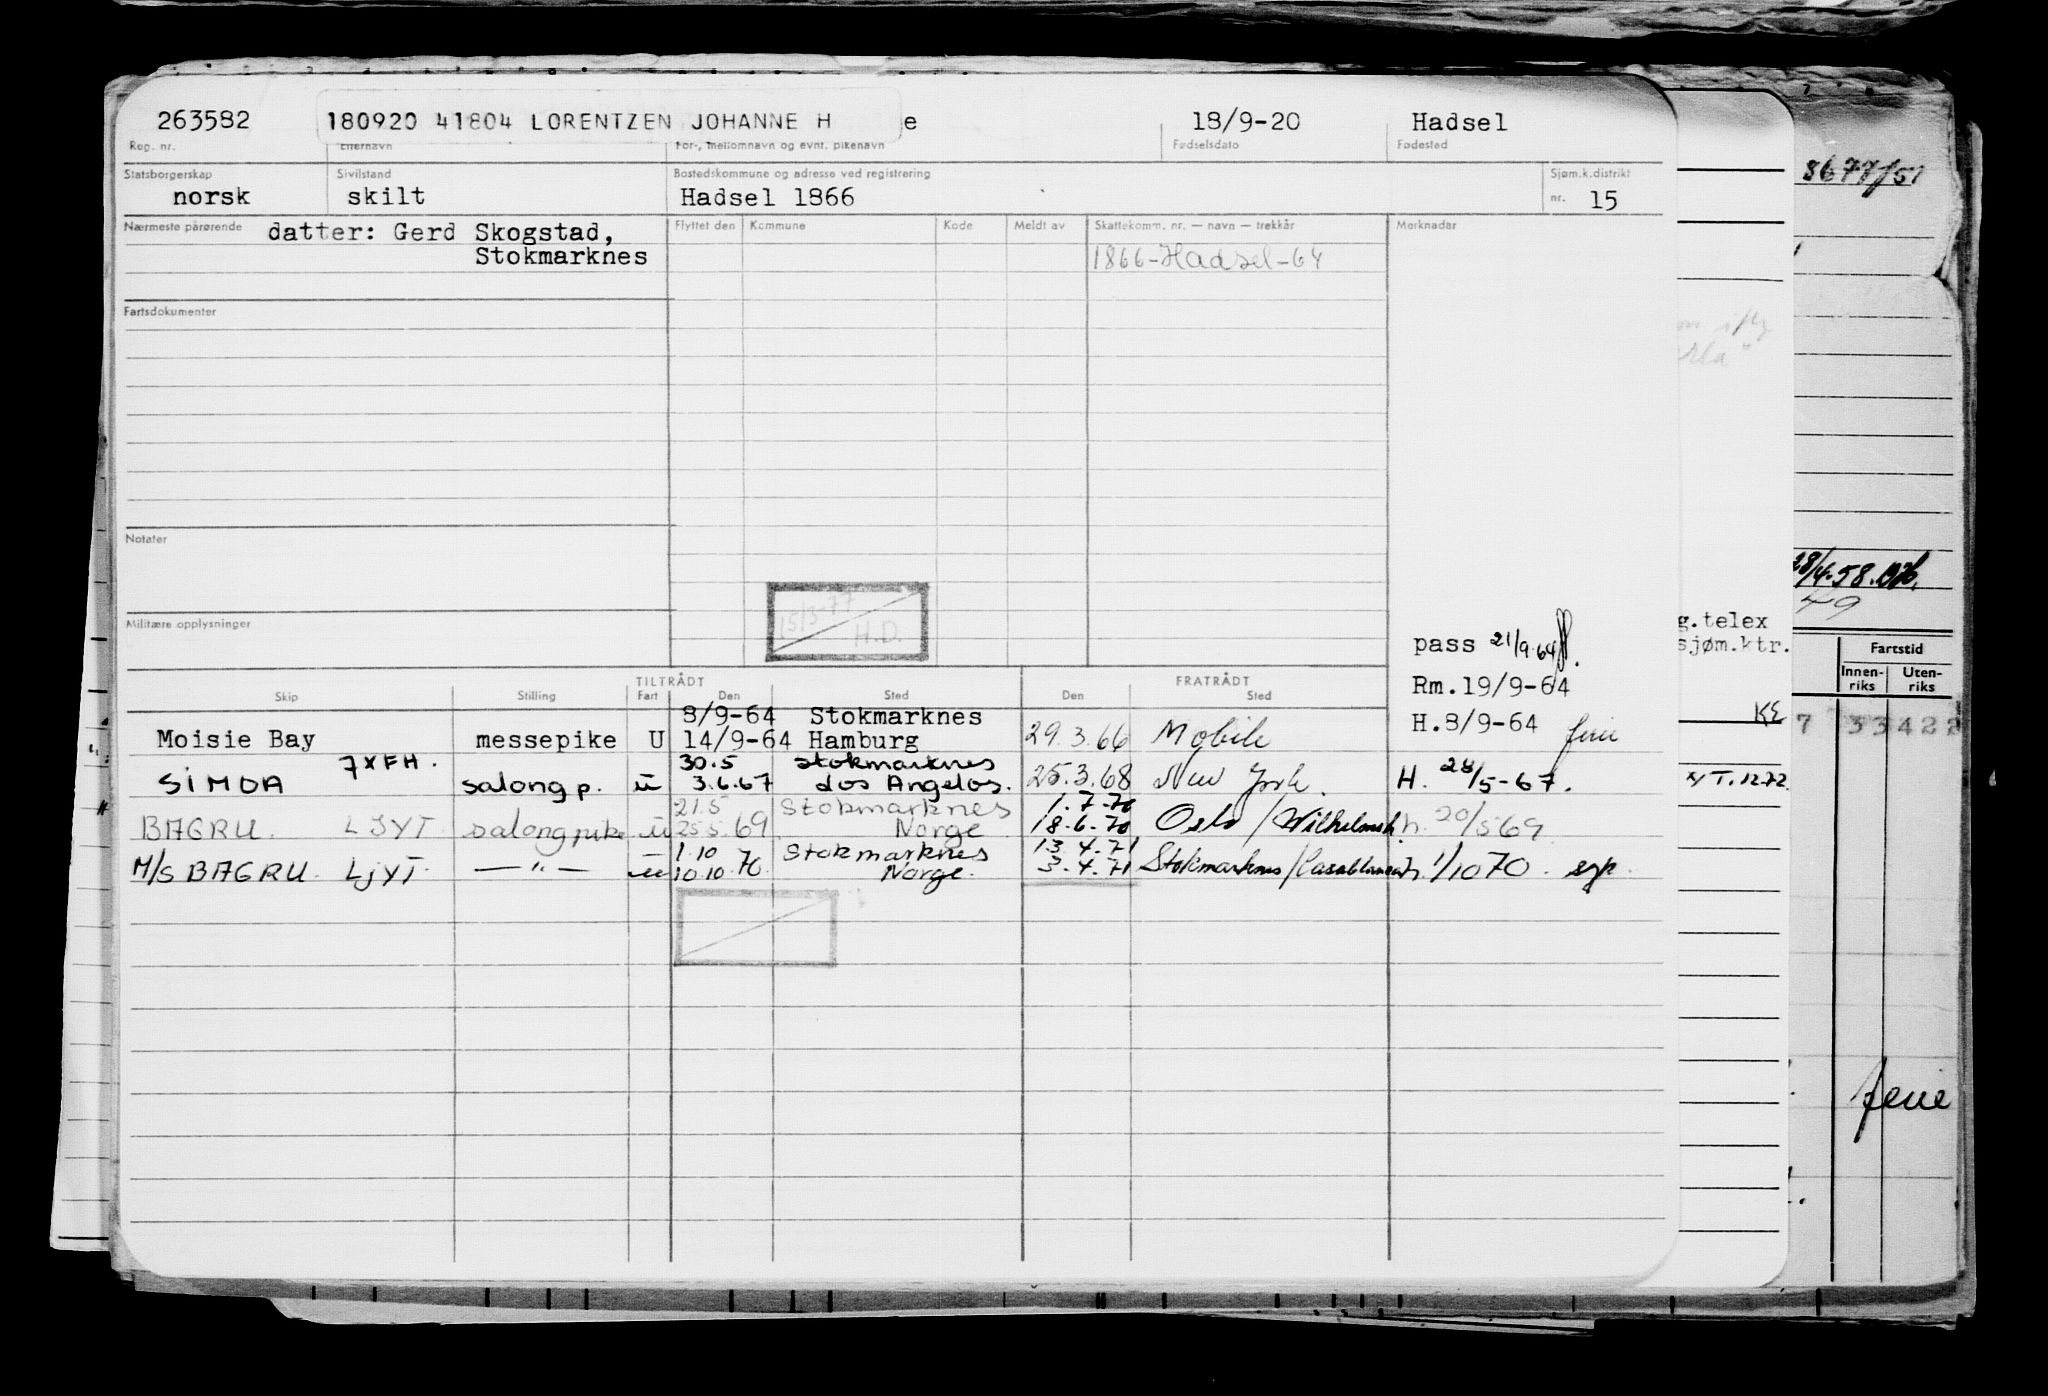 263582 180920 41804 LORENTZEN JOHANNE H e 18/9-20 Hadsel
Reg. nr. Etternavn For-, mellomnavn og evnt. pikenavn Fødselsdato Fødested
Statsborgerskap Sivilstand Bostedskommune og adresse ved registrering Sjøm.k.distrikt
norsk skilt Hadsel 1866 nr. 15
Nærmeste pårørende datter: Gerd Skogstad, Flyttet den Kommune Kode Meldt av Skattekomm. nr. — navn — trekkår Merknader
Stokmarknes 1866-Hadsel-64
Fartsdokumenter
Notater
15/3-77
H.D.
Militære opplysninger
pass 21/9-64
Rm.19/9-64
H.8/9-64
TILTRÅDT FRATRÅDT
Skip Stilling Fart Den Sted Den Sted
8/9-64 Stokmarknes
Moisie Bay messepike U 14/9-64 Hamburg 29.3.66 Mobile
7XFH. 30.5 Stokmarknes
SIMOA salong p. u 3.6.67 Los Angelos. 25.3.68 New York. H. 28/5-67.
21.5 Stokmarknes 1.7.70
BAGRU. LJYT. salongpike u 25.5.69 Norge 18.6.70 Oslo/Wilhelmsh. h. 20/5 69
1.10 Stokmarknes 13.4.71
M/S BAGRU. LJYT. —"— u 10.10.70 Norge. 3.4.71 Stokmarknes/Casablanca h. 1/10 70.
8677/51
28/4.58.
49
g.telex
sjøm.ktr.
Fartstid
Innen-riks Uten-riks
KE
7 33422
T.1272